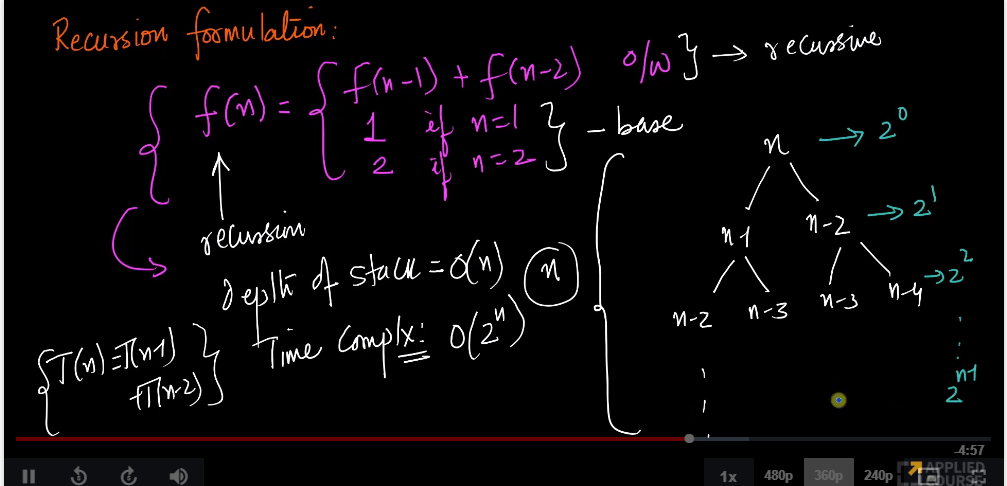 Recursion formulation:
f(n) = { f(n-1) + f(n-2) o/w } → recussive
1 if n=1
2 if n=2 } - base
recurssion
Depth of stack = O(n) n
Time Complx: O(2^n)
{ T(n) = T(n-1)
+T(n-2) }
n → 2^0
n-1 n-2 → 2^1
n-2 n-3 n-3 n-4 → 2^2
2^n-1
-4:57
1x 480p 360p 240p
APPLIED
COURSE